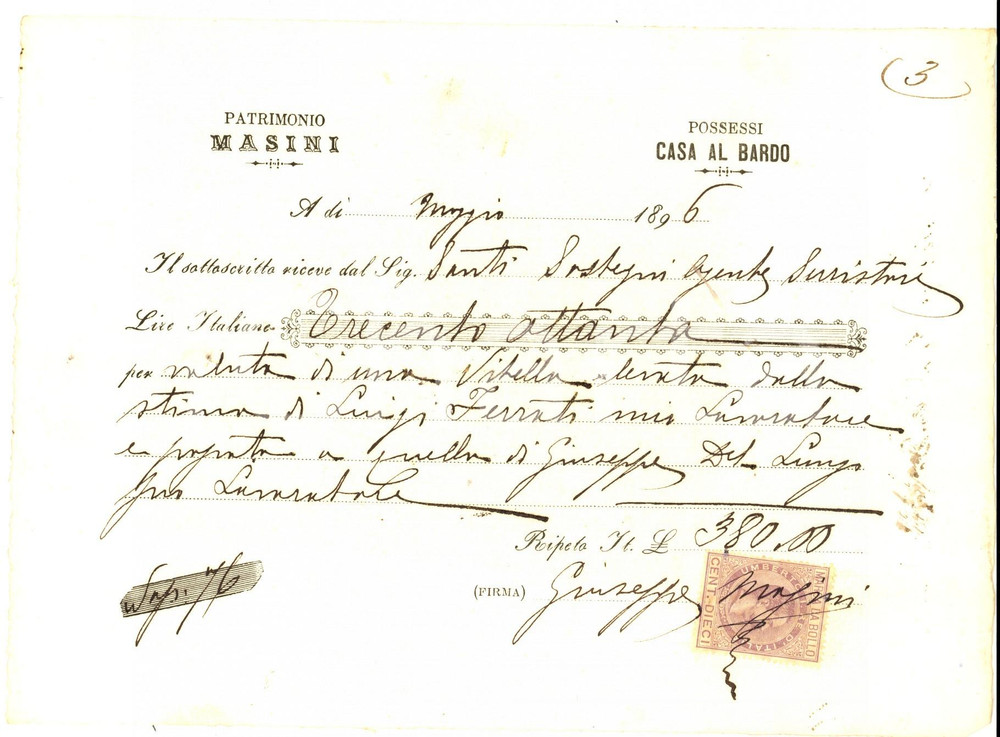 3
PATRIMONIO
MASINI
POSSESSI
CASA AL BARDO
A di Maggio 1896
Il sottoscritto riceve dal Sig. Santi Sostegni Agente Serristori
Lire Italiane Trecento ottanta
per valuta di una Vitella levata dalla
stima di Luigi Ferrati mio Lavoratore
e passata a quella di Giuseppe Del Lungo
suo Lavoratore
Ripeto It. £ 380.00
(FIRMA) Giuseppe Masini
MARCA DA BOLLO
UMBERTO I RE DI ITALIA
CENT. DIECI